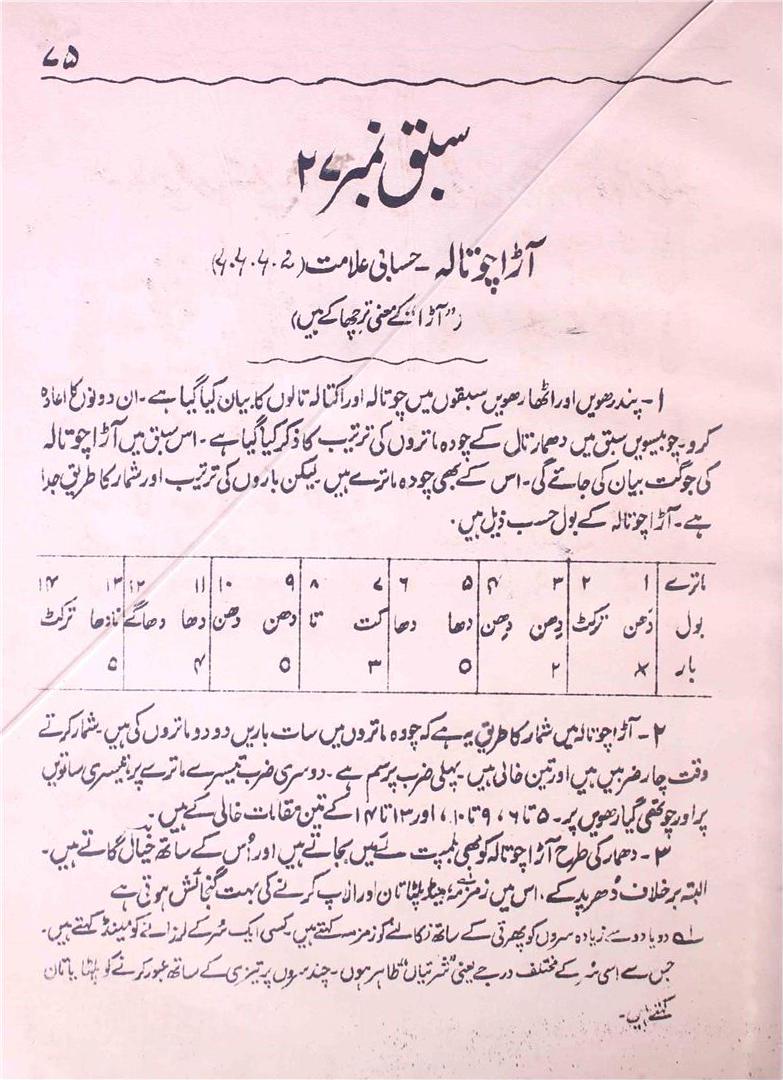 ۷۵
سبق نمبر ۲۷
آڑا چوتالہ - حسابی علامت
("آڑا" کے معنی ترچھا کے ہیں)
۱- پندرھویں اور اٹھارھویں سبقوں میں چوتالہ اور اکتالہ تالوں کا بیان کیا گیا ہے۔ ان دونوں کا اعادہ
کرو۔ چوبیسویں سبق میں دھمار تال کے چودہ ماتروں کی ترتیب کا ذکر کیا گیا ہے۔ اس سبق میں آڑا چوتالہ
کی جو گت بیان کی جائے گی۔ اس کے بھی چودہ ماترے ہیں لیکن باروں کی ترتیب اور شمار کا طریق جدا
ہے۔ آڑا چوتالہ کے بول حسب ذیل ہیں۔
ماترے ۱ ۲ ۳ ۴ ۵ ۶ ۷ ۸ ۹ ۱۰ ۱۱ ۱۲ ۱۳ ۱۴
بول دھن ترکٹ دھن دھن دھا دھا کت تا دھن دھن دھا دھاگے نادھا ترکٹ
بار × ۲ ٥ ۳ ٥ ۴ ٥
۲- آڑا چوتالہ میں شمار کا طریق یہ ہے کہ چودہ ماتروں میں سات باریں دو دو ماتروں کی ہیں۔ شمار کرتے
وقت چار ضربیں ہیں اور تین خالی ہیں۔ پہلی ضرب پر سم ہے۔ دوسری ضرب تیسرے ماترے پر، تیسری ساتویں
پر اور چوتھی گیارھویں پر۔ ۵ تا ۶، ۹ تا ۱۰، اور ۱۳ تا ۱۴ کے تین مقامات خالی کے ہیں۔
۳- دھمار کی طرح آڑا چوتالہ کو بھی بلمپت لَے میں بجاتے ہیں اور اُس کے ساتھ خیال گاتے ہیں۔
البتہ برخلاف دُھرپد کے، اس میں زمزمہ، مینڈ، پلٹا تان اور الاپ کرنے کی بہت گنجائش ہوتی ہے
؎ دو یا دو سے زیادہ سروں کو پھرتی کے ساتھ نکالنے کو زمزمہ کہتے ہیں۔ کسی ایک سُر کے لرزانے کو مینڈ کہتے ہیں۔
جس سے اسی سُر کے مختلف درجے یعنی "شرتیاں" ظاہر ہوں۔ چند سروں پر تیزی کے ساتھ عبور کرنے کو پلٹا یا تان
کہتے ہیں۔